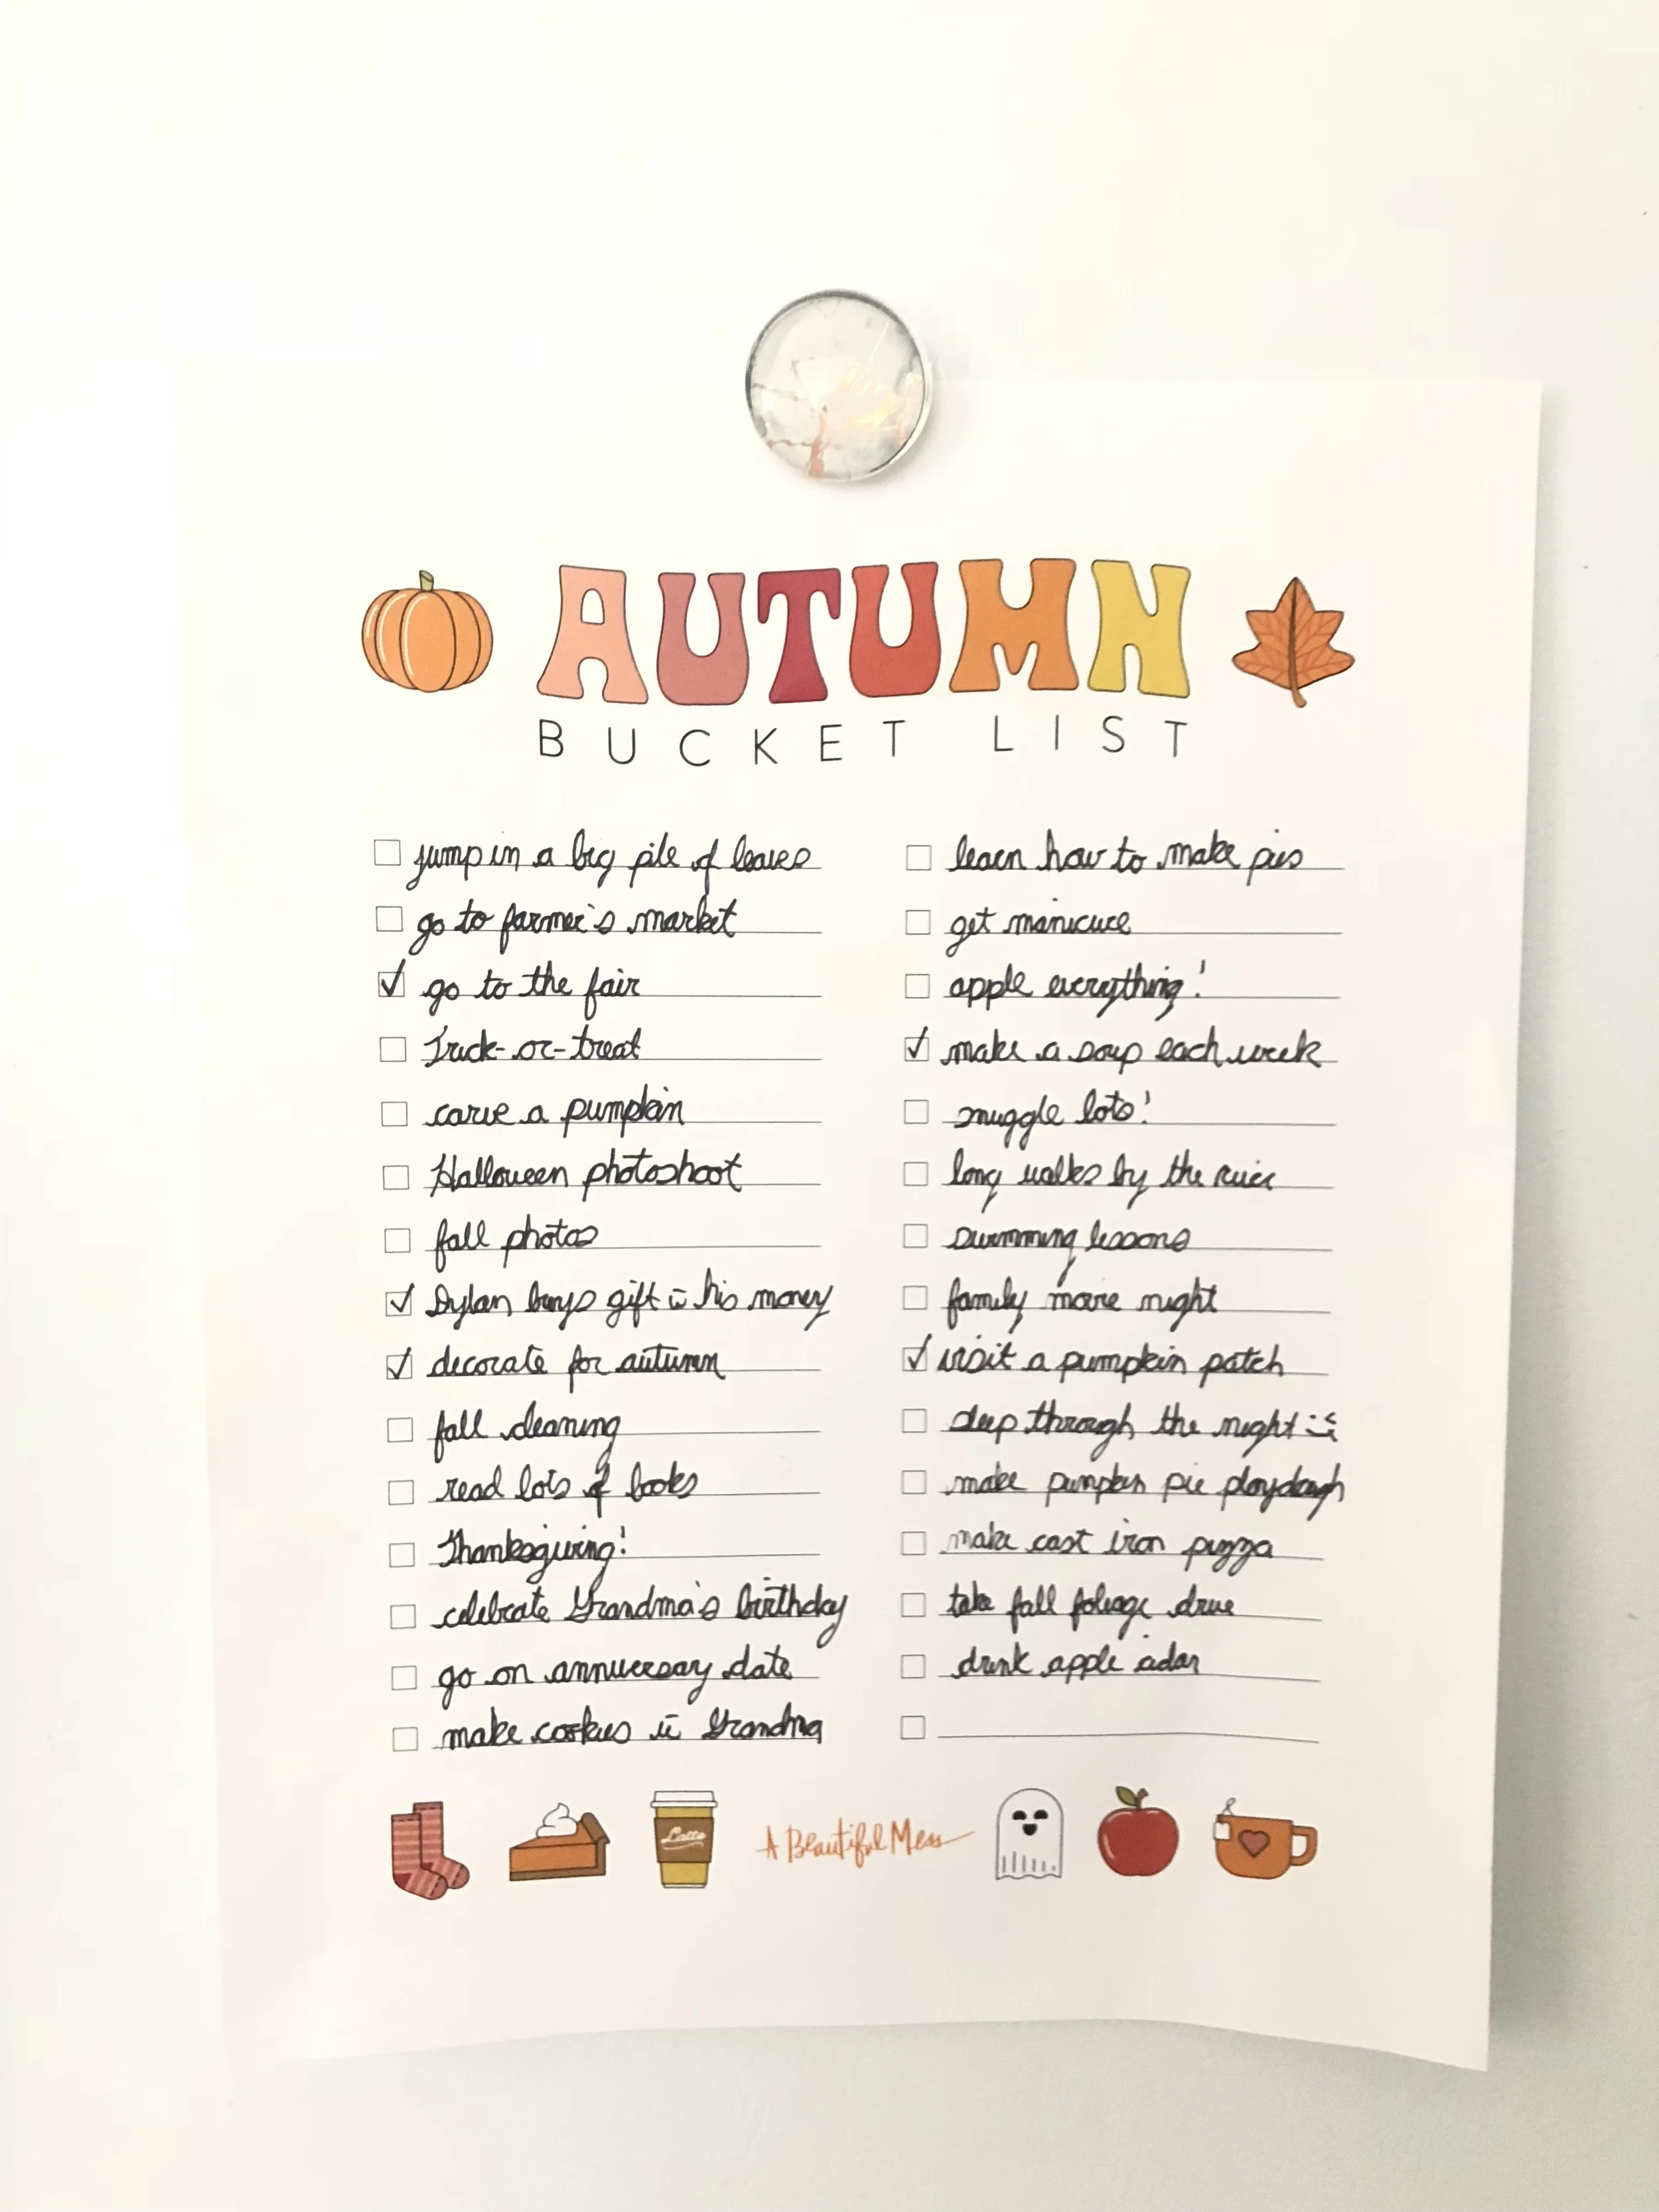 AUTUMN
BUCKET LIST
jump in a big pile of leaves
go to farmer's market
go to the fair
Trick-or-treat
carve a pumpkin
Halloween photoshoot
fall photos
Dylan buys gift c̄ his money
decorate for autumn
fall cleaning
read lots of books
Thanksgiving!
celebrate Grandma's birthday
go on anniversary date
make cookies c̄ Grandma
learn how to make pies
get manicure
apple everything!
make a soup each week
snuggle lots!
long walks by the river
swimming lessons
family movie night
visit a pumpkin patch
sleep through the night
make pumpkin pie playdough
make cast iron pizza
take fall foliage drive
drink apple cidar
Latte
A Beautiful Mess